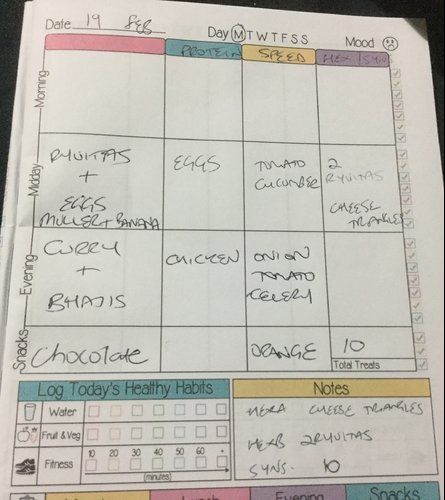 Date 19 FEB Day M T W T F S S Mood
PROTEIN SPEED HEX / SYNS
Morning
Midday
RYVITAS
+
EGGS
MULLER + BANANA
EGGS
TOMATO
CUCUMBER
2
RYVITAS
CHEESE
TRIANGLES
Evening
CURRY
+
BHAJIS
CHICKEN
ONION
TOMATO
CELERY
Snacks
Chocolate
ORANGE
10
Total Treats
Log Today's Healthy Habits
Water
Fruit & Veg
Fitness
10 20 30 40 50 60 +
(minutes)
Notes
HEXA CHEESE TRIANGLES
HEXB 2 RYVITAS
SYNS. 10
Lunch Evening Snacks